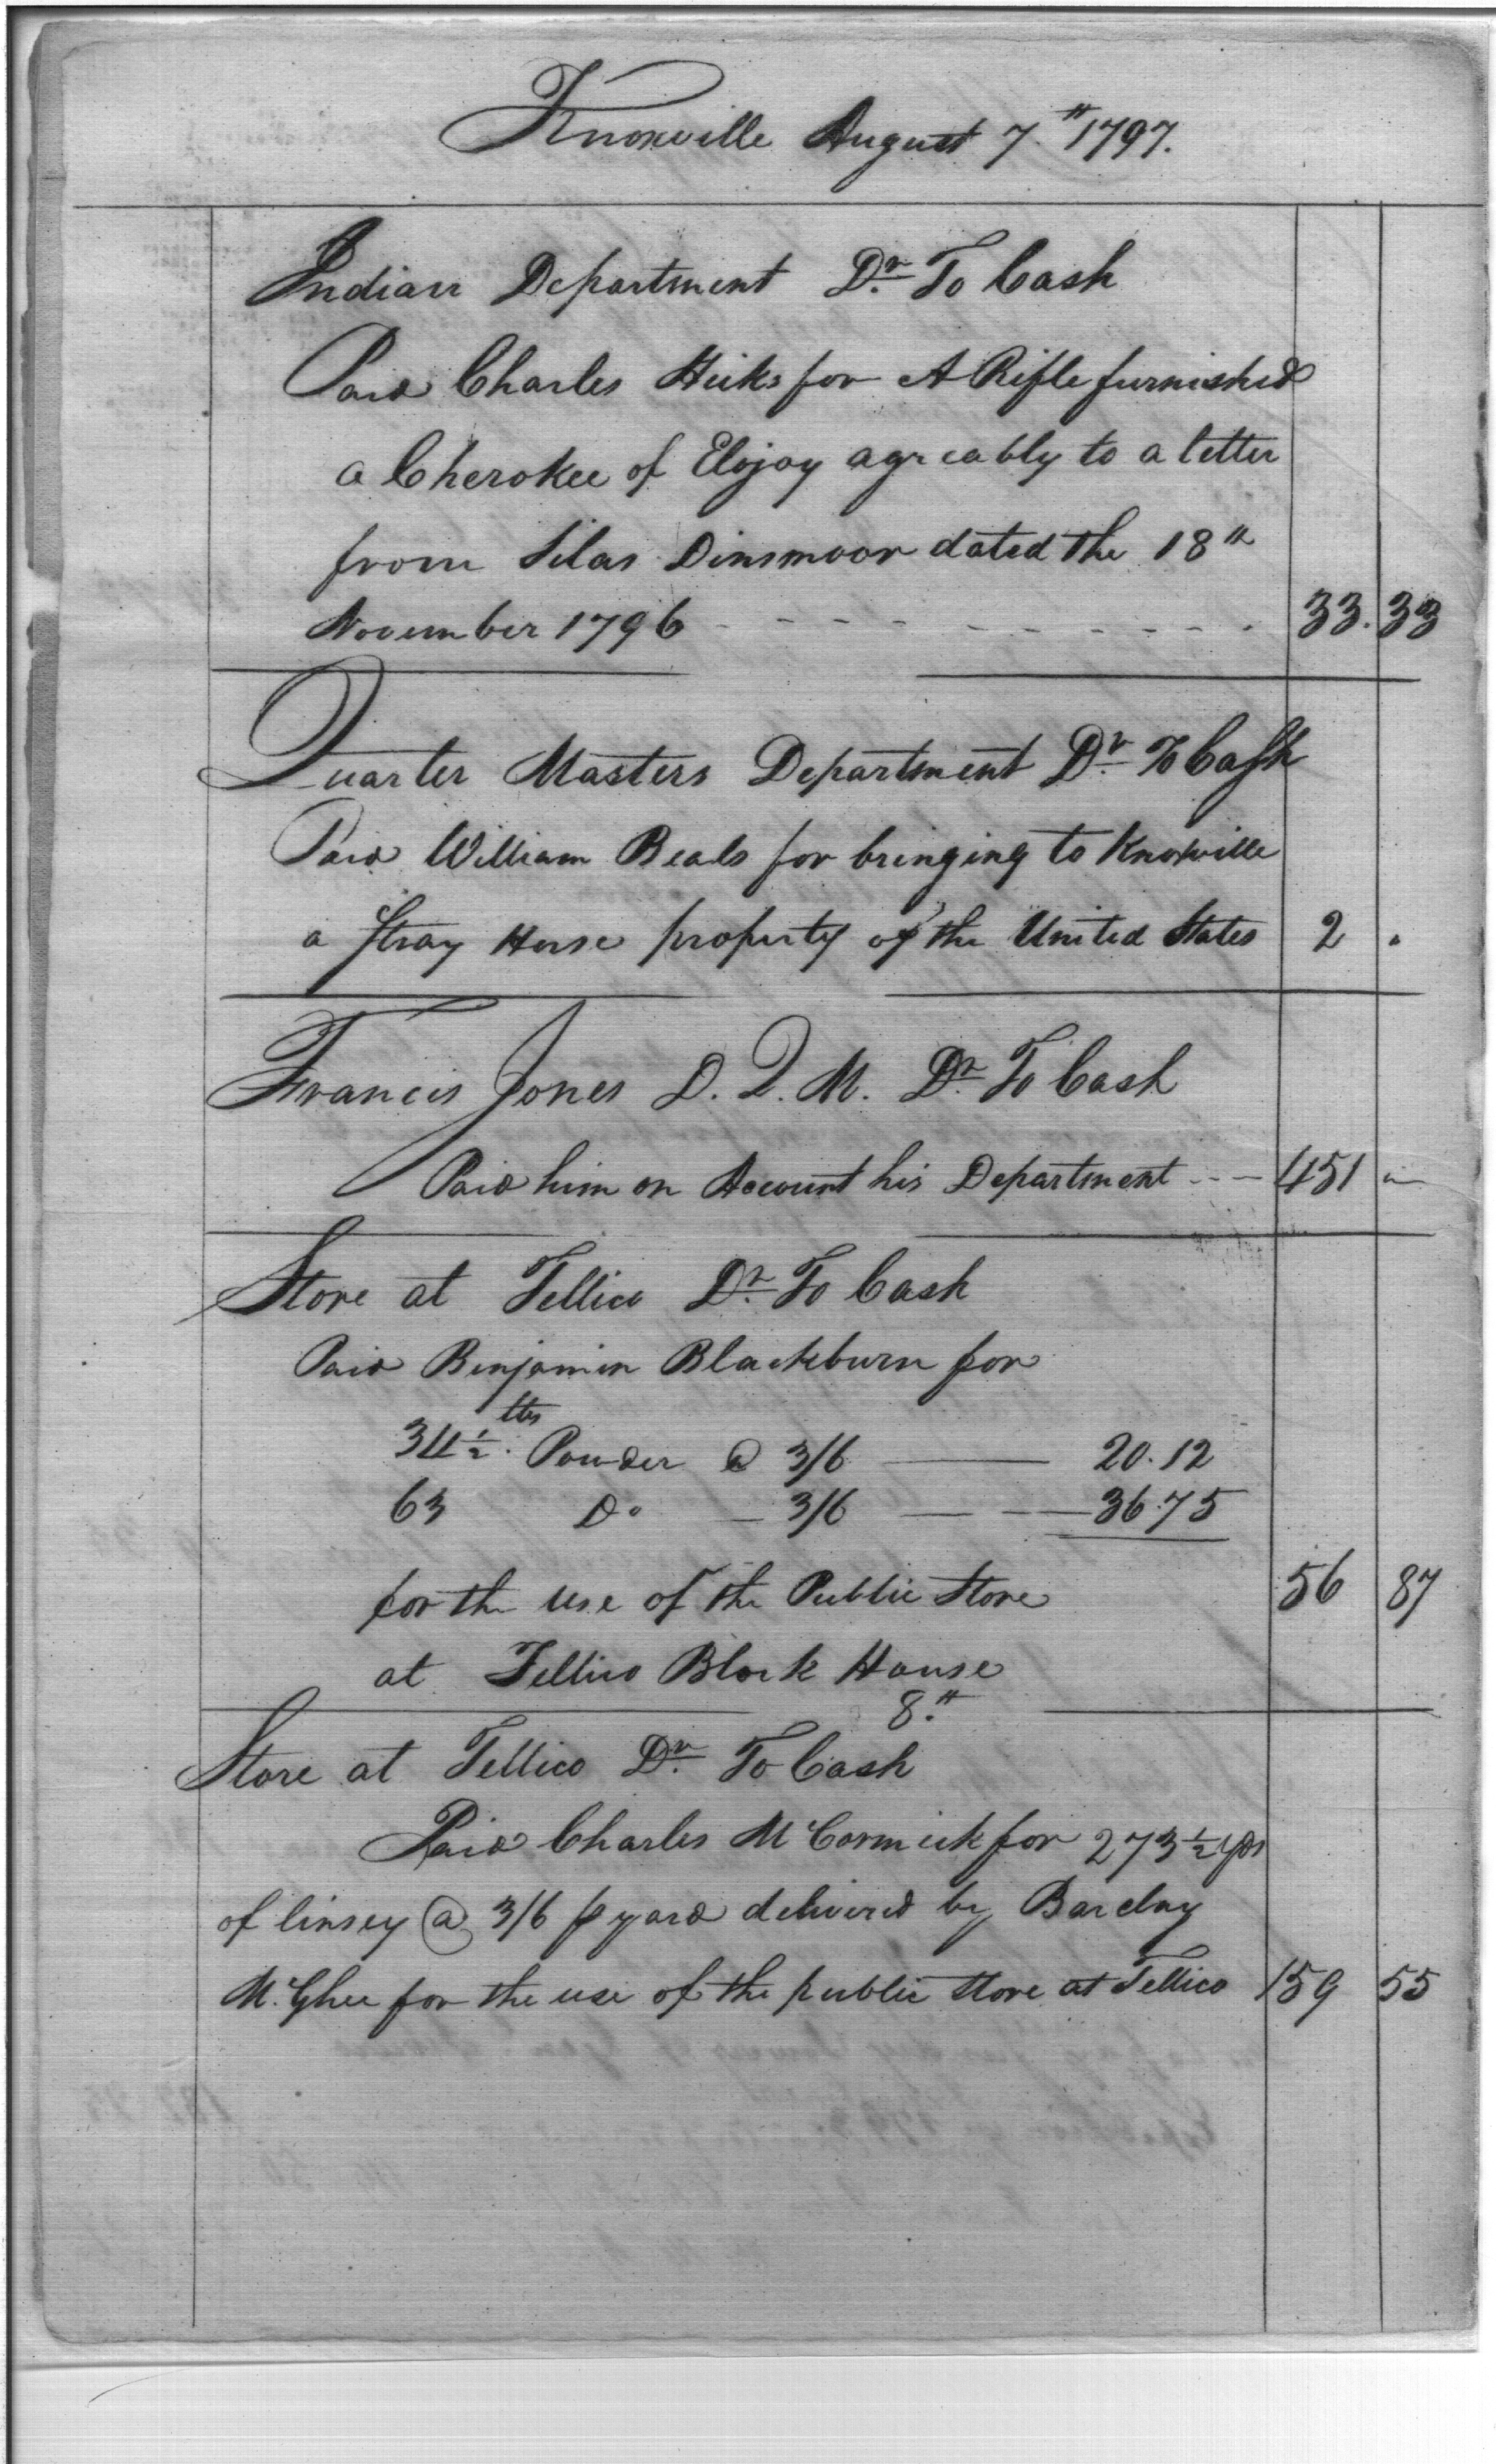 Knoxville August 7.th 1797.
Indian Department Dr. To Cash
Paid Charles Hicks for A Rifle furnished
a Cherokee of Elojoy agreably to a letter
from Silas Dinsmoor dated the 18th
November 1796 - - - - - - - - - - - - 33. 33
Quarter Masters Department Dr. To Cash
Paid William Beals for bringing to Knoxville
a stray Horse property of the United States 2 "
Francis Jones D. Q. M. Dr. To Cash
Paid him on Account his Department - - - 451 "
Store at Tellico Dr. To Cash
Paid Benjamin Blackburn for
34 1/2 lbs Powder @ 3/6 — 20.12
63 Do — 3/6 — — 36.75
for the use of the Public Store 56 87
at Tellico Block House
8.th
Store at Tellico Dr. To Cash
Paid Charles McCormick for 273 1/2 yds
of linsey @ 3/6 p yard delivered by Barclay
McGhee for the use of the public store at Tellico 159 55